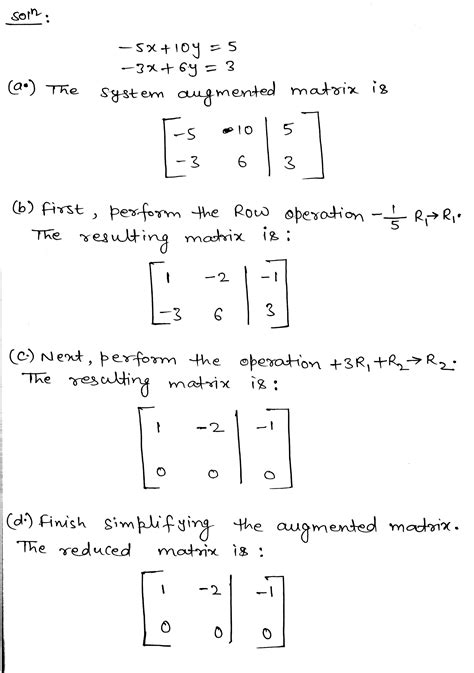 Solⁿ:
-5x+10y = 5
-3x+6y = 3
(a.) The system augmented matrix is
-5 10 | 5
-3 6 | 3
(b) First, perform the Row operation -1/5 R₁→R₁.
The resulting matrix is:
1 -2 | -1
-3 6 | 3
(c.) Next, perform the operation +3R₁+R₂→R₂.
The resulting matrix is:
1 -2 | -1
0 0 | 0
(d.) Finish simplifying the augmented matrix.
The reduced matrix is:
1 -2 | -1
0 0 | 0